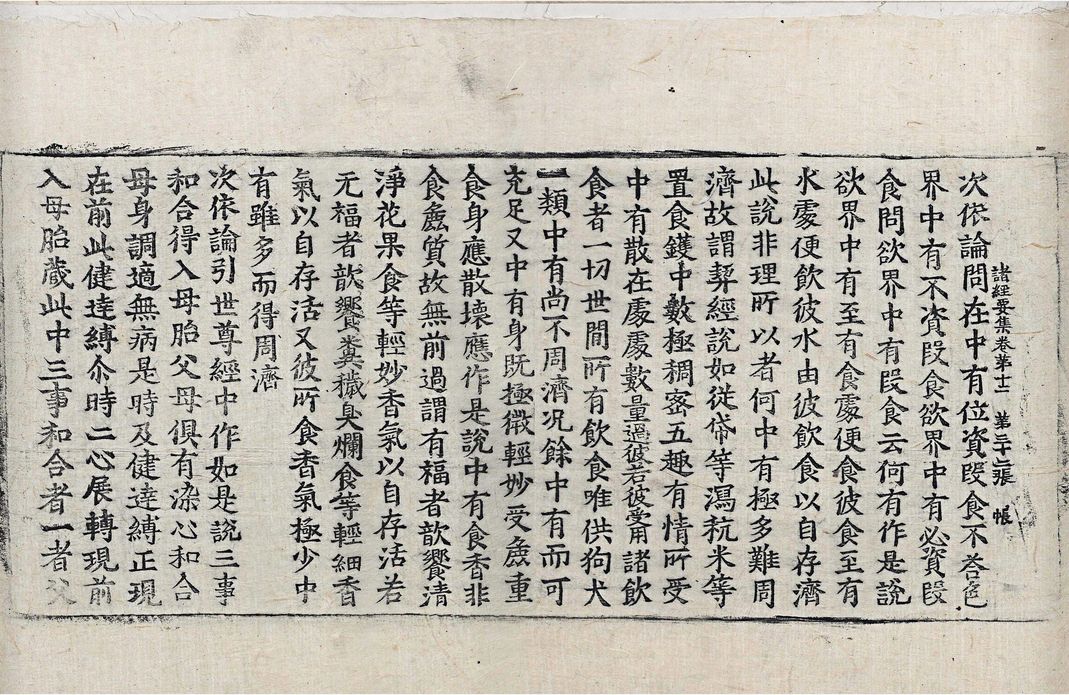 次依論問在中有位資段食不荅色
諸經要集卷第十二　第三十二張　帳
界中有不資段食欲界中有必資段
食問欲界中有段食云何有作是說
欲界中有至有食處便食彼食至有
水處便飲彼水由彼飲食以自存濟
此說非理所以者何中有極多難周
濟故謂契經說如從帒等瀉秔米等
置食鑊中數極稠密五趣有情所受
中有散在處處數量過彼若彼受用諸飲
食者一切世間所有飲食唯供狗犬
一類中有尚不周濟況餘中有而可
充足又中有身既極微輕妙受麁重
食身應散壞應作是說中有食香非
食麁質故無前過謂有福者歆饗清
淨花果食等輕妙香氣以自存活若
无福者歆饗糞穢臭爛食等輕細香
氣以自存活又彼所食香氣極少中
有雖多而得周濟
次依論引世尊經中作如是說三事
和合得入母胎父母俱有染心和合
母身調適無病是時及健達縛正現
在前此健達縛尒時二心展轉現前
入母胎藏此中三事和合者一者父